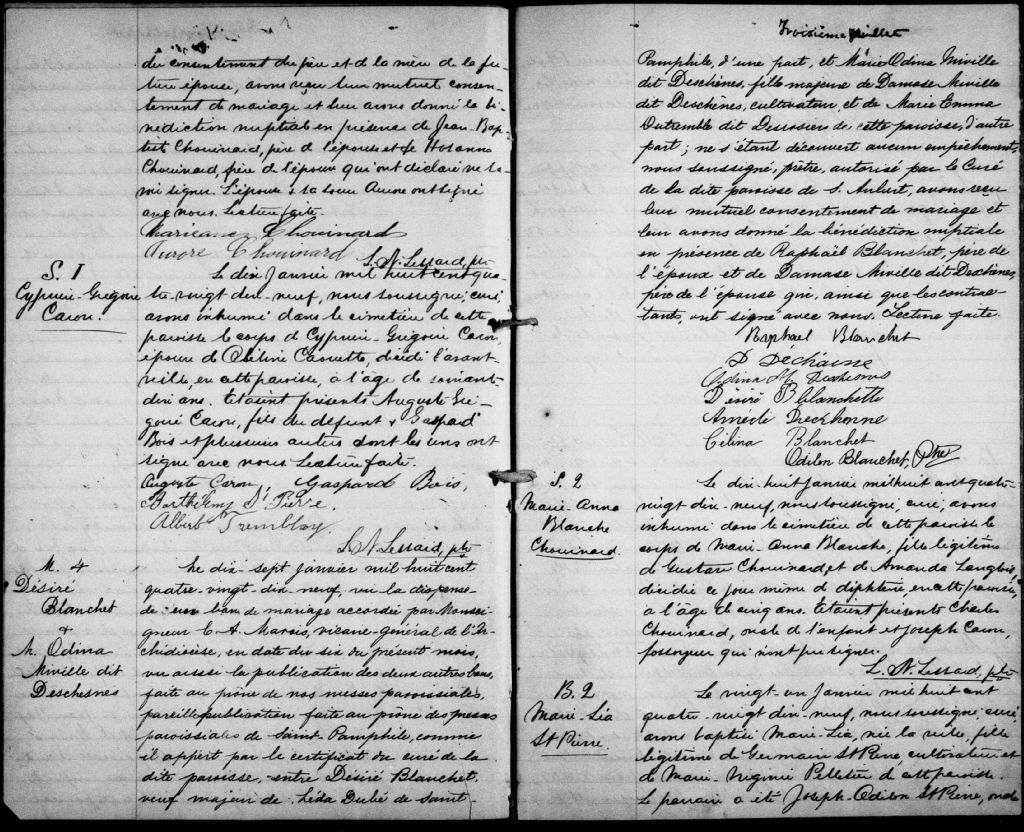 du consentement du père et de la mère de la fu-
ture épouse, avons reçu leur mutuel consen-
tement de mariage et leur avons donné la bé-
nédiction nuptiale en présence de Jean-Bap-
tiste Chouinard, père de l'épouse et de Hosanna
Chouinard, père de l'époux qui ont déclaré ne sa-
voir signer. L'épouse & sa soeur Aurore ont signé
avec nous. Lecture faite.
Chouinard
Aurore Chouinard
L. N. Lessard, ptre
S. 1
Cyprien-Grégoire
Caron.
Le dix Janvier mil huit cent qua-
tre-vingt-dix-neuf, nous soussigné, curé
avons inhumé dans le cimetière de cette
paroisse le corps de Cyprien-Grégoire Caron,
époux de Célina Caouette, décédé l'avant-
veille, en cette paroisse, à l'âge de soixante-
dix ans. Etaient présents Auguste Gré-
goire Caron, fils du défunt & Gaspard
Bois et plusieurs autres dont les uns ont
signé avec nous Lecture faite.
Auguste Caron, Gaspard Bois,
Barthélemy St Pierre.
Albert Tremblay
L. N. Lessard, ptre
M. 4
Désiré
Blanchet
&
M. Odina
Miville dit
Deschesnes
Le dix-sept janvier mil huit cent
quatre-vingt-dix-neuf, vu la dispense
de un ban de mariage accordée par Monsei-
gneur C. A. Marois, vicaire-général de l'Ar-
chidiocèse, en date du six du présent mois,
vu aussi la publication des deux autres bans,
faite au prône de nos messes paroissiales,
pareille publication faite au prône des messes
paroissiales de Saint-Pamphile, comme
il appert par le certificat du curé de la
dite paroisse, entre Désiré Blanchet,
veuf majeur de Léda Dubé de Saint-
Troisième feuillet
Pamphile, d'une part, et Marie Odina Miville
dit Deschênes, fille majeure de Damase Miville
dit Deschênes, cultivateur, et de Marie Emma
Dutremble dit Desrosiers de cette paroisse, d'autre
part; ne s'étant découvert aucun empêchement,
nous soussigné, prêtre, autorisé par le Curé
de la dite paroisse de S. Aubert, avons reçu
leur mutuel consentement de mariage et
leur avons donné la bénédiction nuptiale
en présence de Raphaël Blanchet, père de
l'époux et de Damase Miville dit Deschênes,
père de l'épouse qui, ainsi que les contrac-
tants, ont signé avec nous. Lecture faite.
Raphael Blanchet
D Dechaine
Odina M. Deschesnes
Désiré Blanchette
Amédé
Célina Blanchet
Odilon Blanchet, Ptre
S. 2
Marie-Anna
Blanche
Chouinard.
Le dix-huit janvier mil huit cent quatre-
vingt-dix-neuf, nous soussigné, curé, avons
inhumé dans le cimetière de cette paroisse le
corps de Marie-Anna Blanche, fille légitime
de Gustave Chouinard, et de Amanda Langlois,
décédée ce jour même de diphtérie, en cette paroisse,
à l'âge de cinq ans. Etaient présents Charles
Chouinard, oncle de l'enfant et Joseph Caron,
fossoyeur qui n'ont pu signer.
L. N. Lessard, ptre
B. 2
Marie-Léa
St Pierre.
Le vingt-un Janvier mil huit cent
quatre-vingt-dix-neuf, nous soussigné, curé
avons baptisé Marie-Léa, née la veille, fille
légitime de Germain St Pierre, cultivateur et
de Marie-Virginie Pelletier de cette paroisse.
Le parrain a été Joseph-Odilon St Pierre, oncle